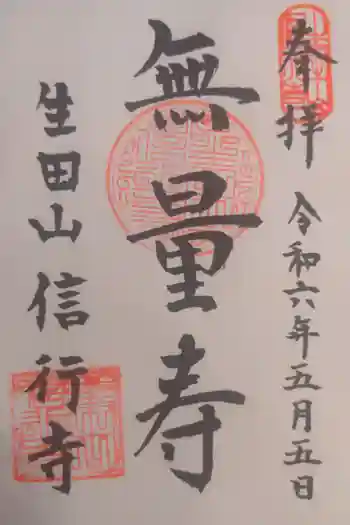 奉拝
令和六年五月五日
無量寿
生田山 信行寺